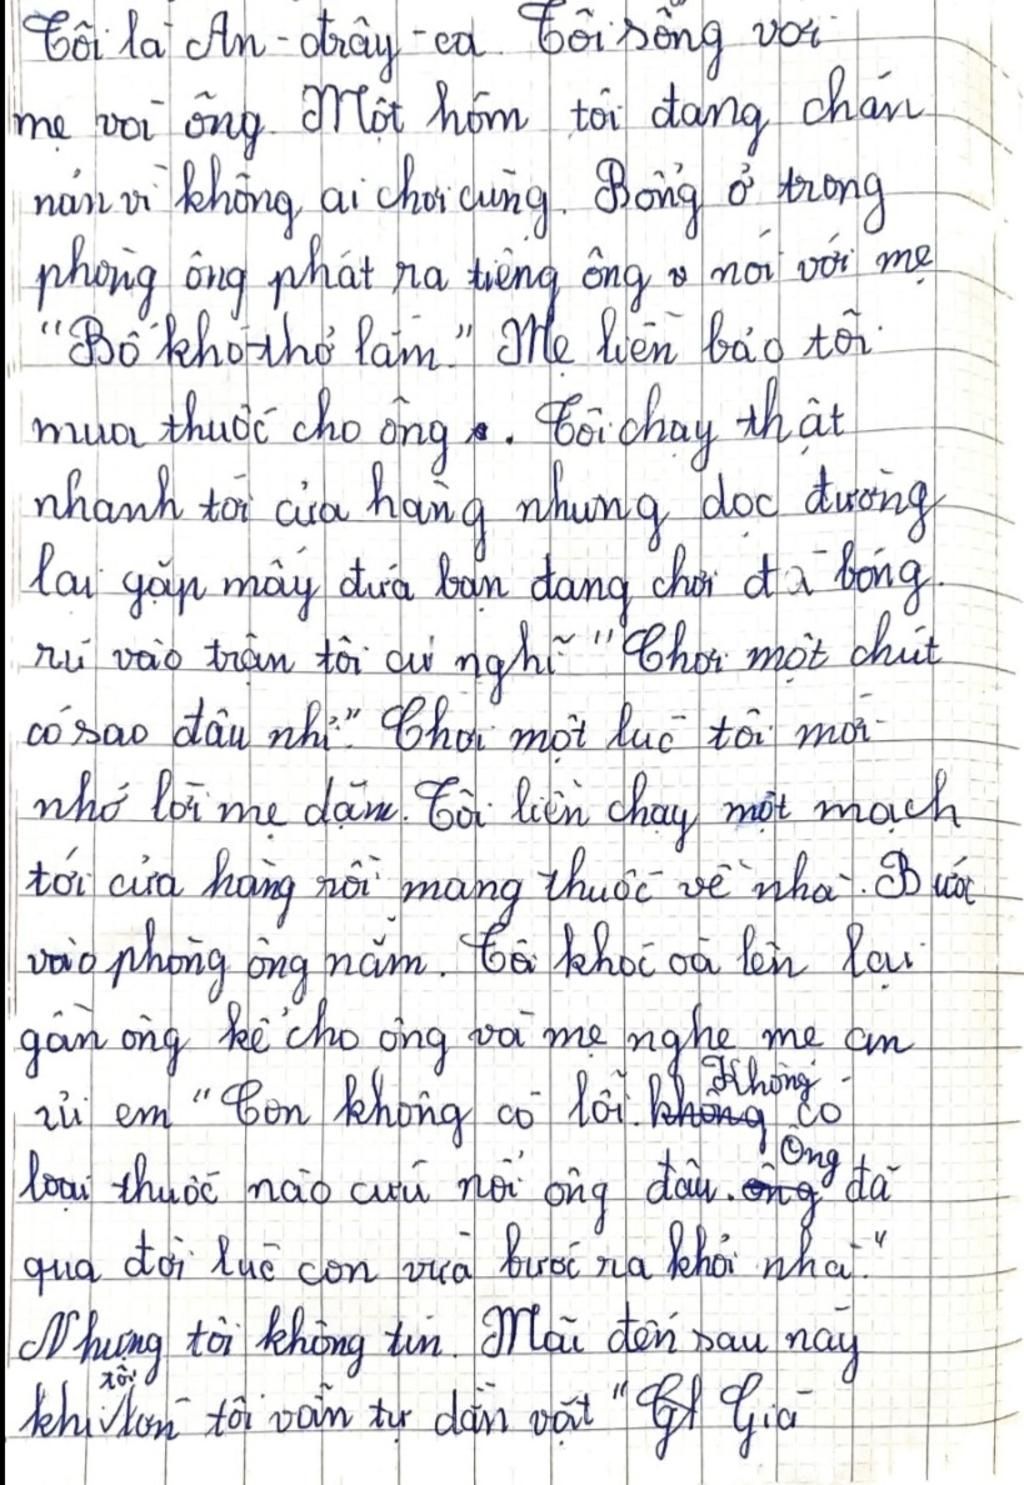 Tôi là An-đrây-ca. Tôi sống với
mẹ với ông. Một hôm tôi đang chán
nản vì không ai chơi cùng. Bỗng ở trong
phòng ông phát ra tiếng ông nói với mẹ
"Bố khó thở lắm." Mẹ liền bảo tôi
mua thuốc cho ông. Tôi chạy thật
nhanh tới cửa hàng nhưng dọc đường
lại gặp mấy đứa bạn đang chơi đá bóng
rủ vào trận tôi cứ nghĩ "Chơi một chút
có sao đâu nhỉ." Chơi một lúc tôi mới
nhớ lời mẹ dặn. Tôi liền chạy một mạch
tới cửa hàng rồi mang thuốc về nhà. Bước
vào phòng ông nằm. Tôi khóc oà lên lại
gần ông kể cho ông và mẹ nghe mẹ an
rủi em "Con không có lỗi. Không có
loại thuốc nào cứu nổi ông đâu. Ông đã
qua đời lúc con vừa bước ra khỏi nhà."
Nhưng tôi không tin. Mãi đến sau này
khi tôi lớn tôi vẫn tự dằn vặt "Giá